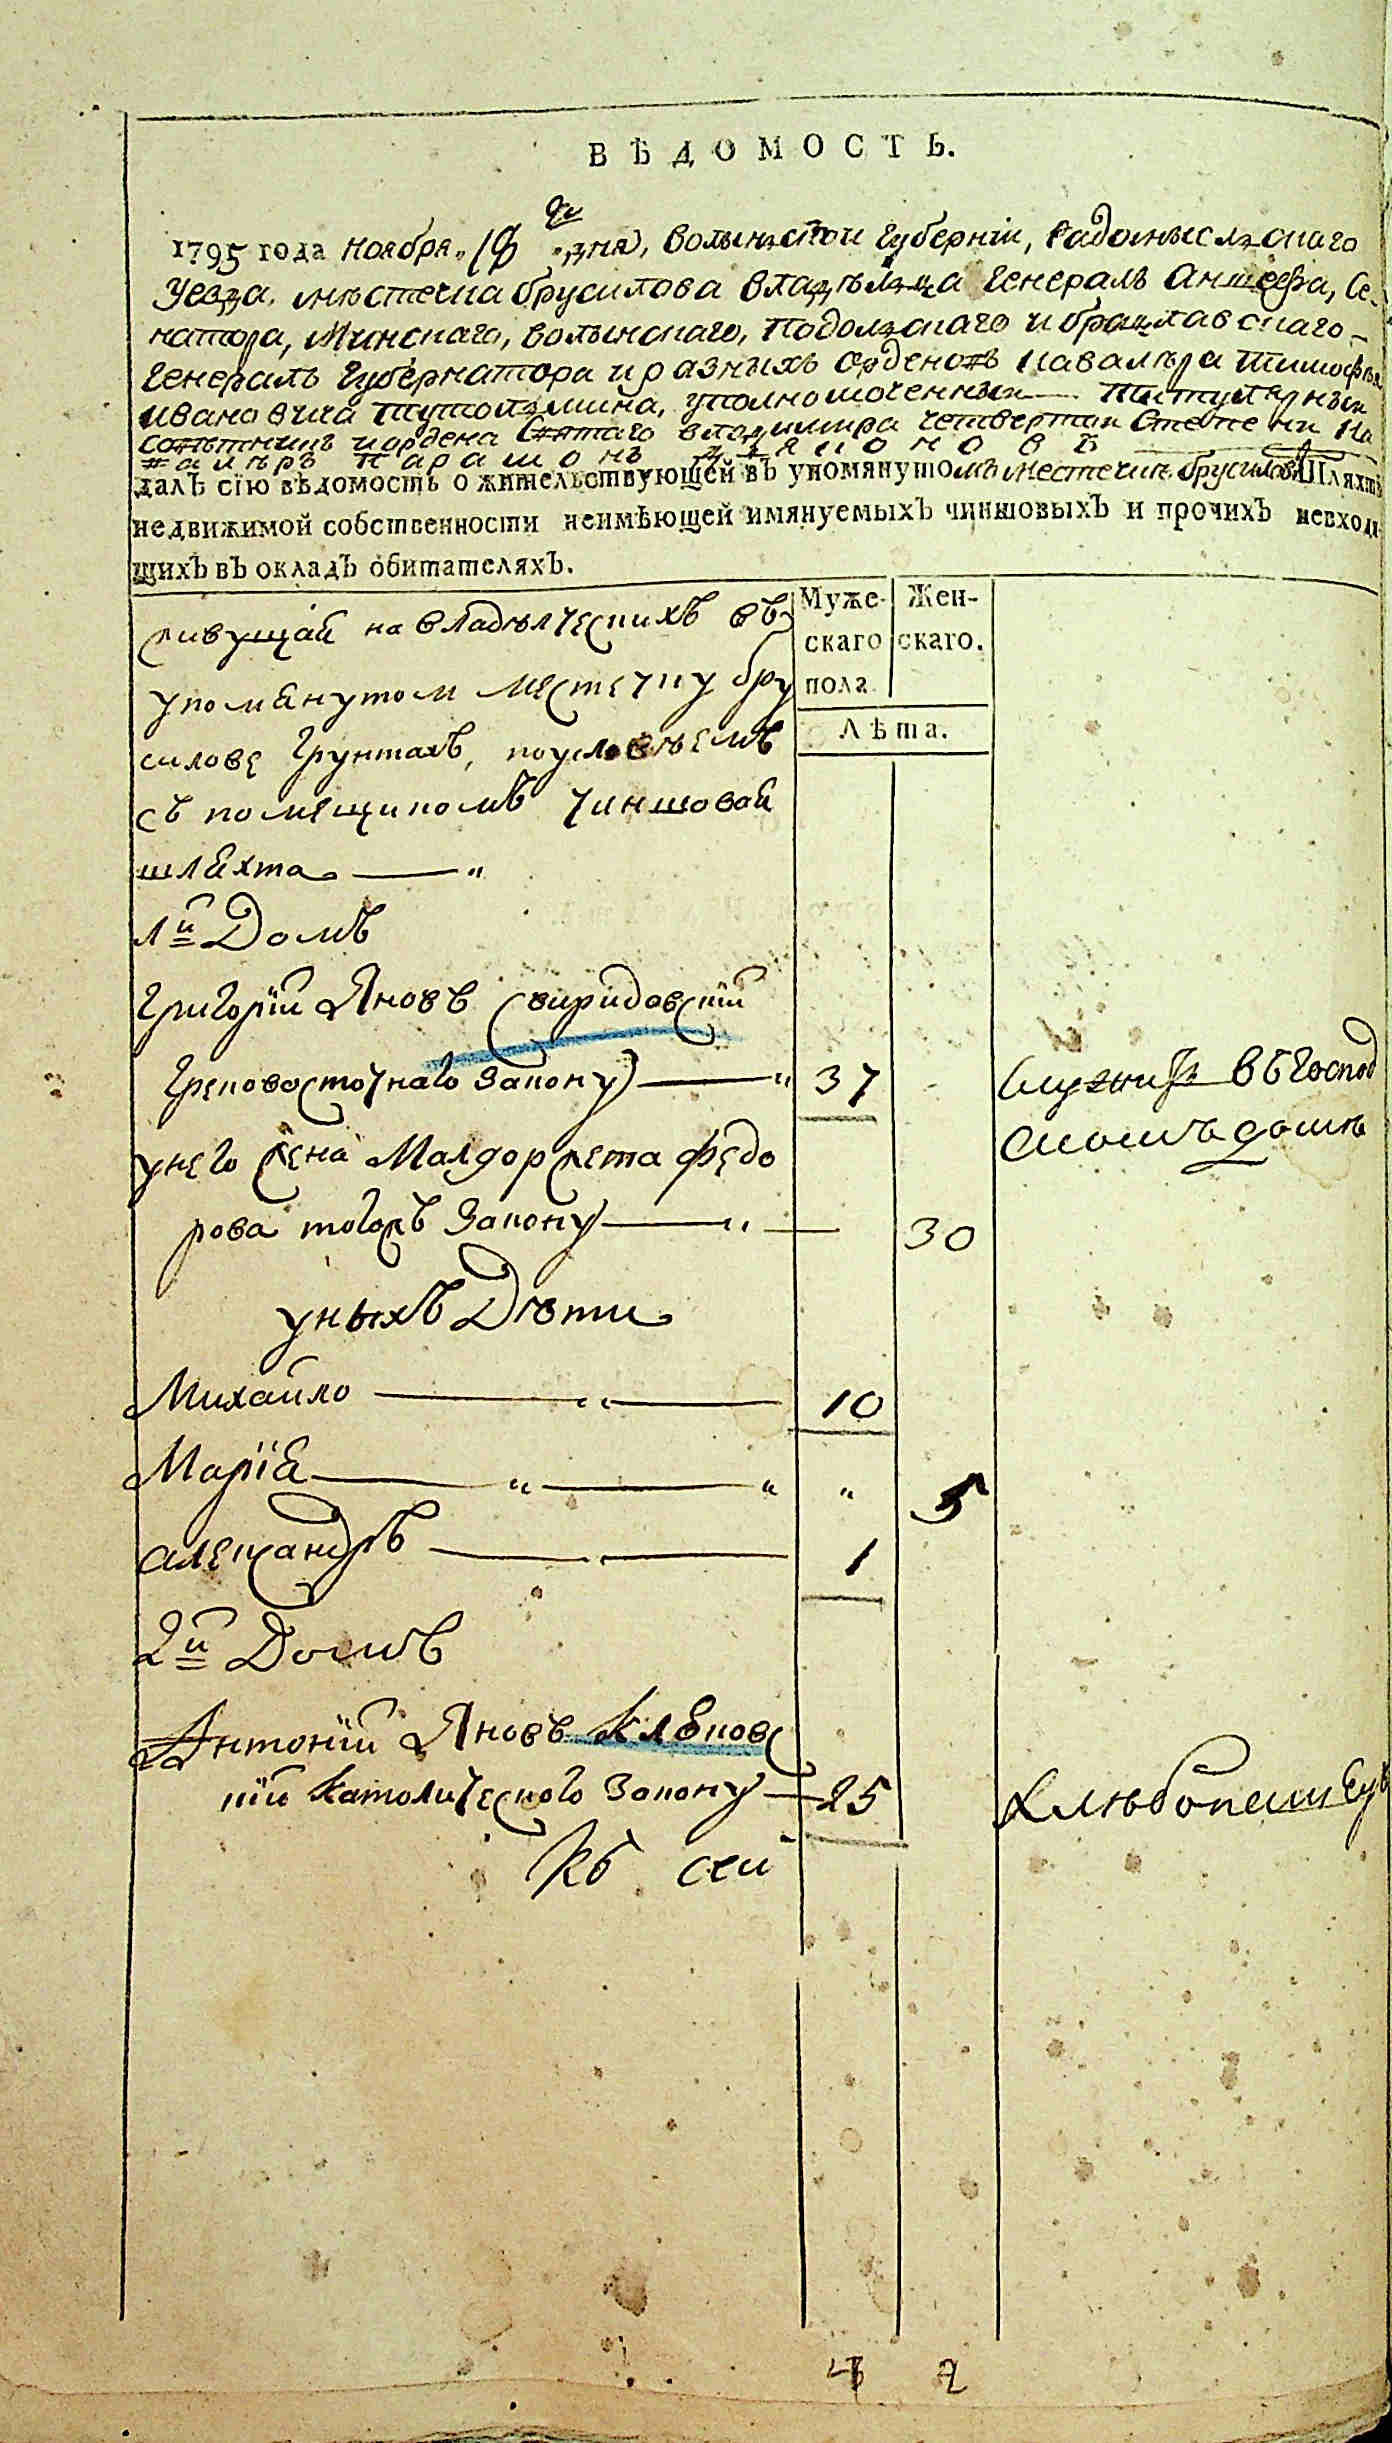 ВѢДОМОСТЬ.
1795 года ноября дня, волынской губернїи, Радомыслскаго
уезда, мѣстечка брусилова владѣлца генералъ Аншефа, Се-
натора, Минскаго, волынскаго, Подолскаго и брацлавскаго
генералъ губернатора и разныхъ орденовъ кавалѣра тимофѣя
ивановича тутолмина, уполномоченный Титулярный
совѣтникъ и ордена Святаго владимира четвертой Степени Ка
валѣръ Парамонъ
далъ сїю вѣдомость о жительствующей въ упомянутомъ местечкѣ брусиловѣ Шляхтѣ
недвижимой собственности неимѣющей имянуемыхъ чиншовыхъ и прочихъ невходя
щихъ въ окладъ обитателяхъ.
Муже- Жен-
скаго скаго.
пола
Лѣта.
живущай на владѣлческихъ въ
упомянутом местечку бру
силове грунтахъ, поусловѣемъ
съ помещикомъ чиншовой
шляхта
1й Домъ
григорїй Яновъ Свиридовскїй
грековосточнаго закону 37 служитъ въ господ
скомъ доме
унего жена Малдоржета федо
рова тогожъ закону 30
уныхъ Дѣти
Михайло 10
Марїя 5
александръ 1
2й Домъ
Антонїй Яновъ Клѣновс
кїй католического закону 25 хлѣбопашец
Къ сей
4 2